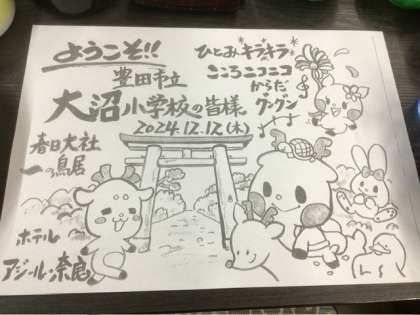 ようこそ!!
豊田市立
大沼小学校の皆様
2024.12.12(木)
ひとみキラキラ
こころニコニコ
からだ
グングン
春日大社
一の鳥居
ホテル
アジール・奈良